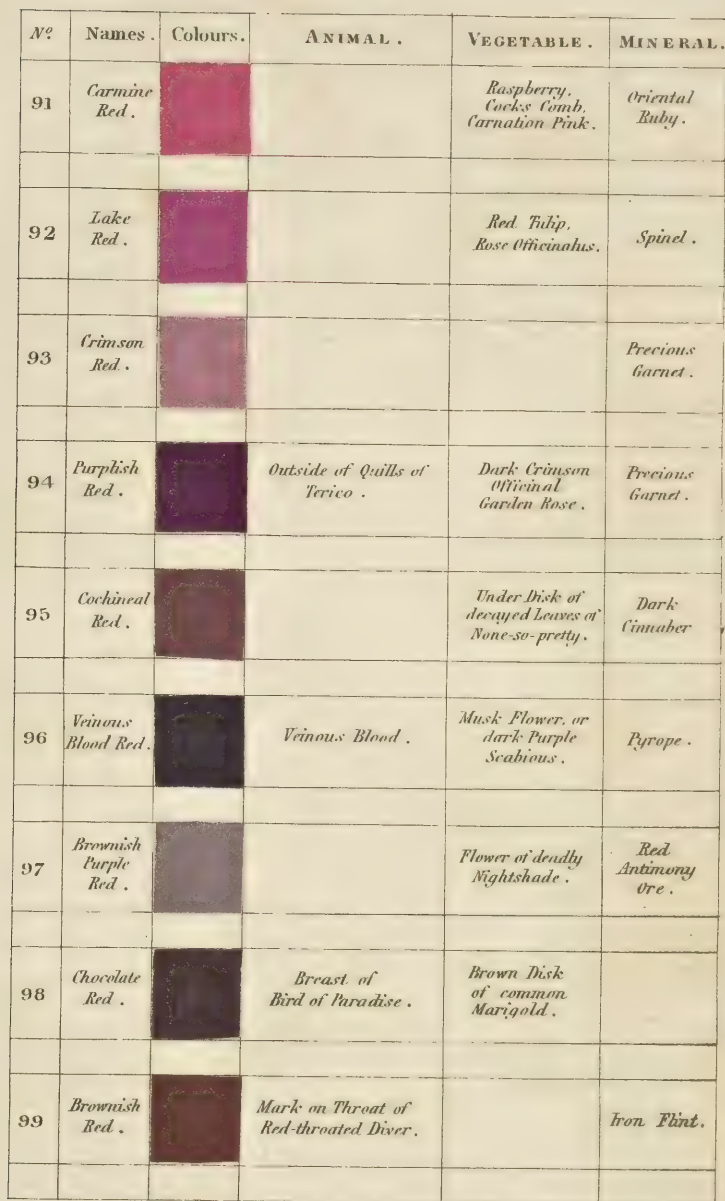 Nº Names. Colours. ANIMAL. VEGETABLE. MINERAL.
91 Carmine Red. Raspberry, Cocks Comb, Carnation Pink. Oriental Ruby.
92 Lake Red. Red Tulip, Rose Officinalus. Spinel.
93 Crimson Red. Precious Garnet.
94 Purplish Red. Outside of Quills of Terico. Dark Crimson Officinal Garden Rose. Precious Garnet.
95 Cochineal Red. Under Disk of decayed Leaves of None-so-pretty. Dark Cinnaber
96 Veinous Blood Red. Veinous Blood. Musk Flower, or dark Purple Scabious. Pyrope.
97 Brownish Purple Red. Flower of deadly Nightshade. Red Antimony Ore.
98 Chocolate Red. Breast of Bird of Paradise. Brown Disk of common Marigold.
99 Brownish Red. Mark on Throat of Red-throated Diver. Iron Flint.